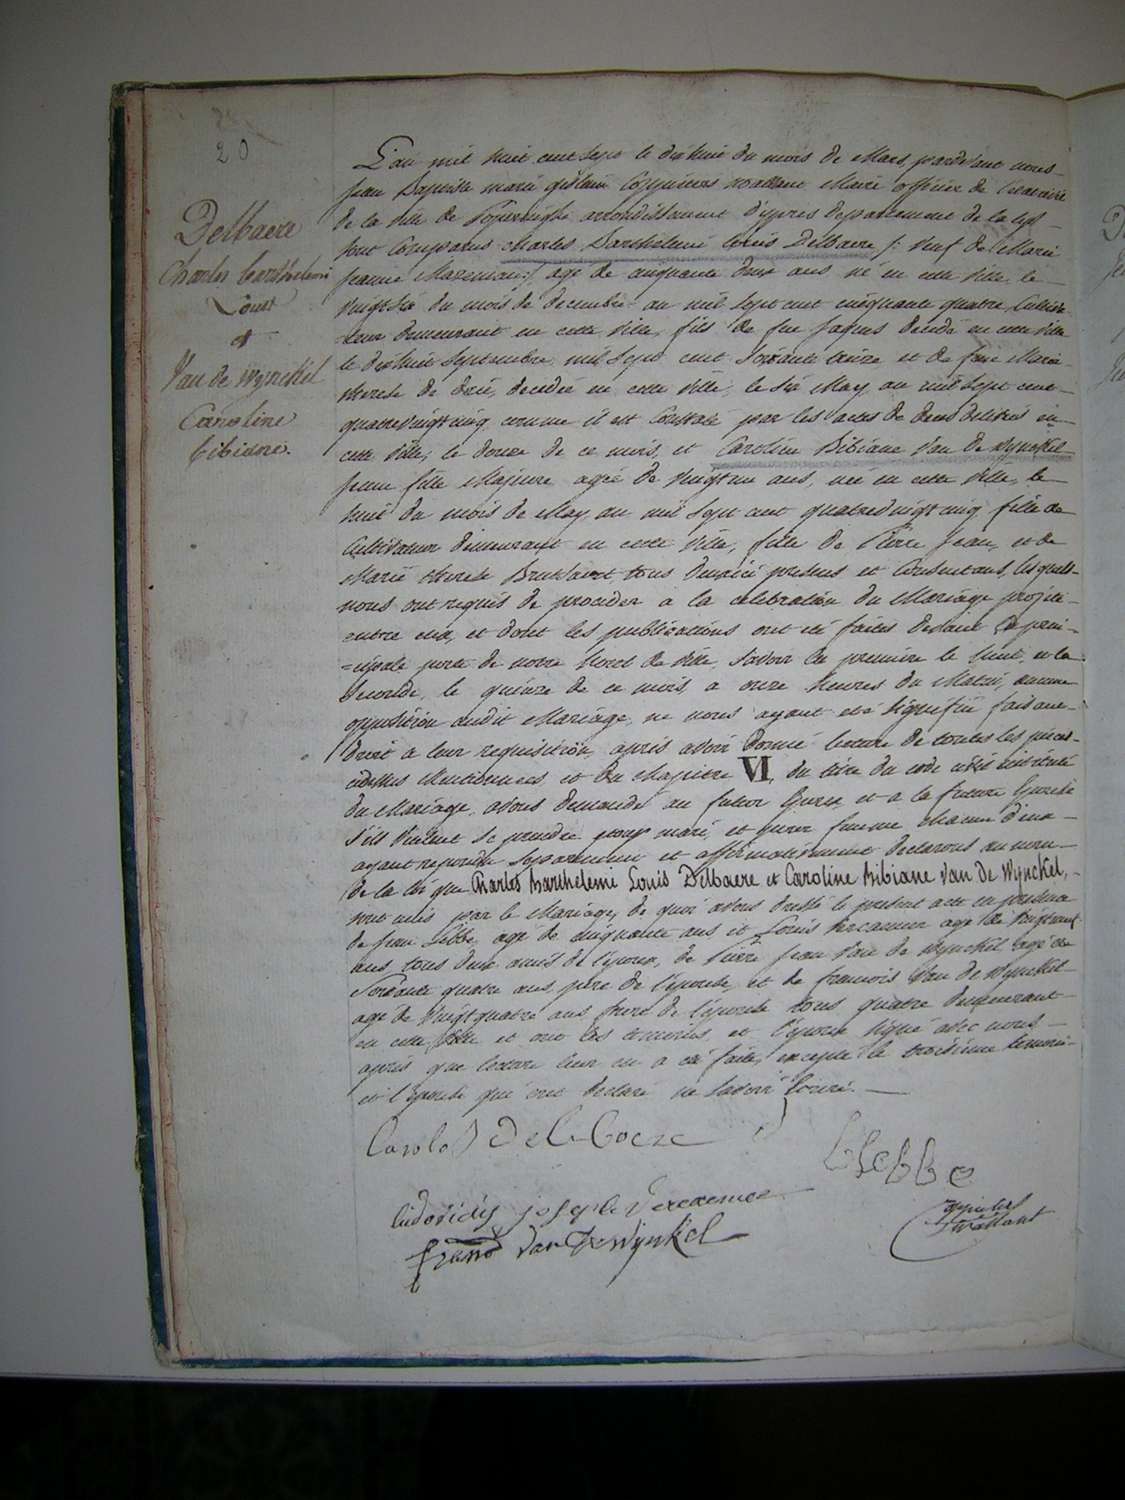 20
Delbaere
Charles Barthelemi
Louis
et
Van de Wynckel
Caroline
bibiane.
L'an mil huit cent sept le dix huit du mois de Mars, pardevant nous
Jean Baptiste marie Maire officier de l'etat civil
de la ville de Poperinghe arrondissement d'ypres departement de la Lys
sont Comparus Charles Barthelemi Louis Delbaere /: veuf de Marie
jeanne :/ agé de cinquante deux ans né en cette ville le
vingt six du mois de decembre an mil sept cent cinquante quatre, Cultiva-
-teur demeurant en cette ville, fils de feu Jaques decedé en cette ville
le dix huit Septembre mil sept cent soixante treize et de feue Marie
therese de decedée en cette ville, le six May an mil sept cent
quatrevingt cinq comme il est Constaté par les actes de deces delivrés en
cette ville, le douze de ce mois, et Caroline Bibiane Van de Wynckel
jeune fille Majeure agée de vingt un ans, née en cette ville, le
huit du mois de May an mil sept cent quatrevingt cinq fille de
Cultivateur demeurant en cette ville, fille de Pierre Jean, et de
Marie therese tous deux ici presens et Consentans, lesquels
nous ont requis de proceder à la celebration du Mariage projetté
entre eux, et dont les publications ont été faites devant la prin-
=cipale porte de notre hotel de ville, savoir la premiere le huit, et la
seconde, le quinze de ce mois, a onze heures du Matin, aucune
opposition audit Mariage, ne nous ayant eté signifiée faisant
droit à leur requisition, après avoir donné lecture de toutes les pieces
cidessus Mentionnées et du chapitre VI, du titre du code civil intitulé
du Mariage, avons demandé au futur Epoux, et a la future Epouse
s'ils veulent se prendre pour mari, et pour femme, chacun d'eux
ayant repondu separement et affirmativement declarons au nom
de la loi que Charles Barthelemi Louis Delbaere et Caroline Bibiane Van de Wynckel,
sont unis par le Mariage, de quoi avons dressé le present acte en presence
de Jean Lebbe, agé de cinquante ans, et Louis agé de
ans tous deux amis de l'epoux, de Pierre Jean Van de Wynckel agé de
soixante quatre ans, pere de l'epouse, et de francois Van de Wynckel
agé de vingt quatre ans frere de l'epouse tous quatre demeurant
en cette ville et ont les temoins, et l'epoux signé avec nous
après que lecture leur en a eté faite, excepté le troisieme temoin
et l'epouse qui ont declaré ne savoir ecrire.
Carolus Delbaere
Lebbe
ludovicus josephe
frans van de Wynkel
Wallant